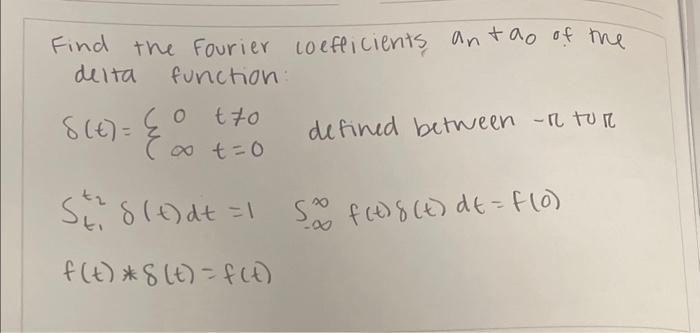 Find the Fourier coefficients, an + a0 of the
delta function:
δ(t) = { 0 t≠0
∞ t=0
defined between -π to π
∫t₁^t₂ δ(t)dt = 1 ∫-∞^∞ f(t)δ(t) dt = f(0)
f(t) * δ(t) = f(t)